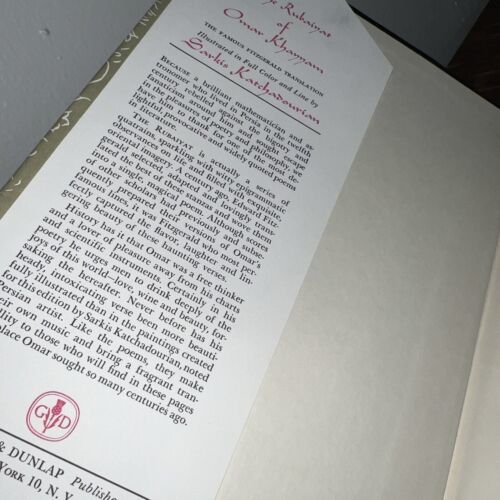 Rubaiyat
of
Omar Khayyam
THE FAMOUS FITZGERALD TRANSLATION
Illustrated in Full Color and Line by
Sarkis Katchadourian
BECAUSE a brilliant mathematician and as-
tronomer who lived in Persia in the twelfth
century rebelled against the bigotry and
fanaticism around him and sought escape
in the pleasures of poetry and philosophy, we
have him to thank for one of the most de-
lightful, provocative and widely quoted poems
in literature.
THE RUBAIYAT is actually a series of
quatrains, sparkling with witty epigrammatic
observances on life and filled with exquisite
oriental imagery. A century ago, Edward Fitz-
gerald selected, adapted and lovingly trans-
lated the best of these stanzas and wove them
into a single, magical poem. Although scores
of other scholars had previously, and subse-
quently, prepared their versions of Omar's
famous lines, it was Fitzgerald who most per-
fectly captured the flavor, laughter and lin-
gering beauty of the haunting verses.
History has it that Omar was a free thinker
and a lover of pleasure away from his charts
and scientific instruments. Certainly in his
poetry he urges men to drink deeply of the
joys of this world—love, wine and beauty, for-
saking the hereafter. Never before has his
heady, intoxicating verse been more beauti-
fully illustrated than in the paintings created
for this edition by Sarkis Katchadourian, noted
Persian artist. Like the poems, they make
their own music and bring a fragrant tran-
quillity to those who will find in these pages
place Omar sought so many centuries ago.
G D
& DUNLAP Publishe
YORK 10, N. Y.